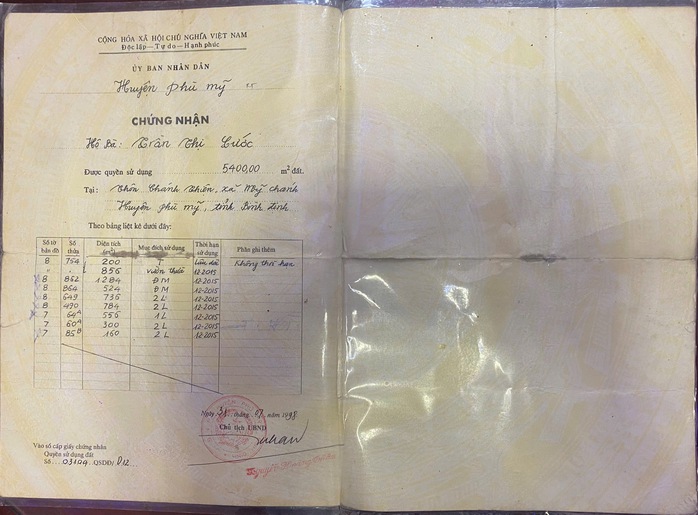 CỘNG HÒA XÃ HỘI CHỦ NGHĨA VIỆT NAM
Độc lập — Tự do — Hạnh phúc
ỦY BAN NHÂN DÂN
Huyện Phù Mỹ
CHỨNG NHẬN
Hộ Bà: Trần Thị Cước
Được quyền sử dụng 5400,00 m² đất.
Tại: Thôn Chánh Thiện, xã Mỹ Chánh
Huyện Phù Mỹ, tỉnh Bình Định
Theo bảng liệt kê dưới đây:
Số tờ bản đồ Số thửa Diện tích (m2) Mục đích sử dụng Thời hạn sử dụng Phần ghi thêm
8 754 200 T Lâu dài Không thời hạn
" . 856 vườn thuế 12-2015
8 862 1284 ĐM 12-2015
8 864 524 ĐM 12-2015
8 649 736 2L 12-2015
8 490 784 2L 12-2015
7 64A 556 1L 12-2015
7 60A 300 2L 12-2015
7 85B 160 2L 12-2015
Ngày 31 tháng 07 năm 1998
Chủ tịch UBND
Vào sổ cấp giấy chứng nhận
Quyền sử dụng đất
Số 03109 QSDĐ/D12